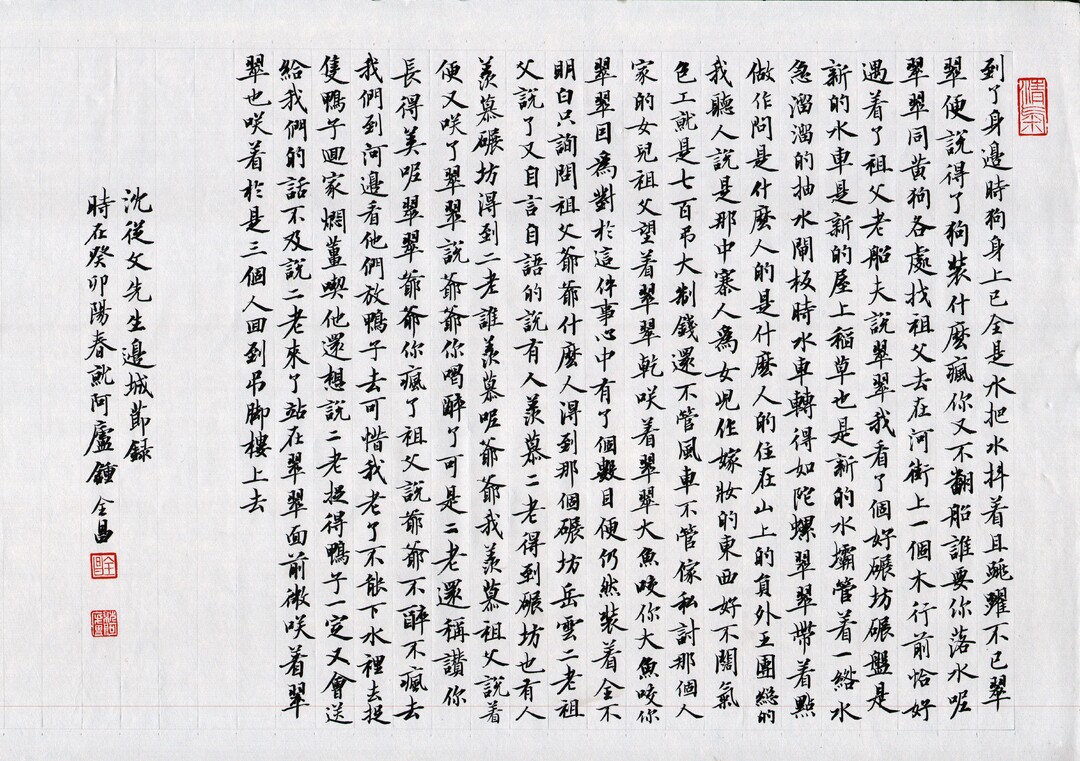 到了身邊時狗身上已全是水把水抖着且跳躍不已翠
翠便說得了狗裝什麼瘋你又不翻船誰要你落水呢
翠翠同黃狗各處找祖父去在河街上一個木行前恰好
遇着了祖父老船夫說翠翠我看了個好碾坊碾盤是
新的水車是新的屋上稻草也是新的水壩管着一絡水
急溜溜的抽水閘板時水車轉得如陀螺翠翠帶着點
做作問是什麼人的是什麼人的住在山上的員外王團總的
我聽人說是那中寨人為女兒作嫁妝的東西好不闊氣
包工就是七百吊大制錢還不管風車不管傢私討那個人
家的女兒祖父望着翠翠乾咲着翠翠大魚咬你大魚咬你
翠翠因為對於這件事心中有了個數目便仍然裝着全不
明白只詢問祖父爺爺什麼人得到那個碾坊岳雲二老祖
父說了又自言自語的說有人羨慕二老得到碾坊也有人
羨慕碾坊得到二老誰羨慕呢爺爺我羨慕祖父說着
便又咲了翠翠說爺爺你喝醉了可是二老還稱讚你
長得美呢翠翠爺爺你瘋了祖父說爺爺不醉不瘋去
我們到河邊看他們放鴨子去可惜我老了不能下水裡去捉
隻鴨子回家燜薑喫他還想說二老捉得鴨子一定又會送
給我們的話不及說二老來了站在翠翠面前微咲着翠
翠也咲着於是三個人回到吊脚樓上去
沈從文先生邊城節録
時在癸卯陽春就阿廬鍾全昌